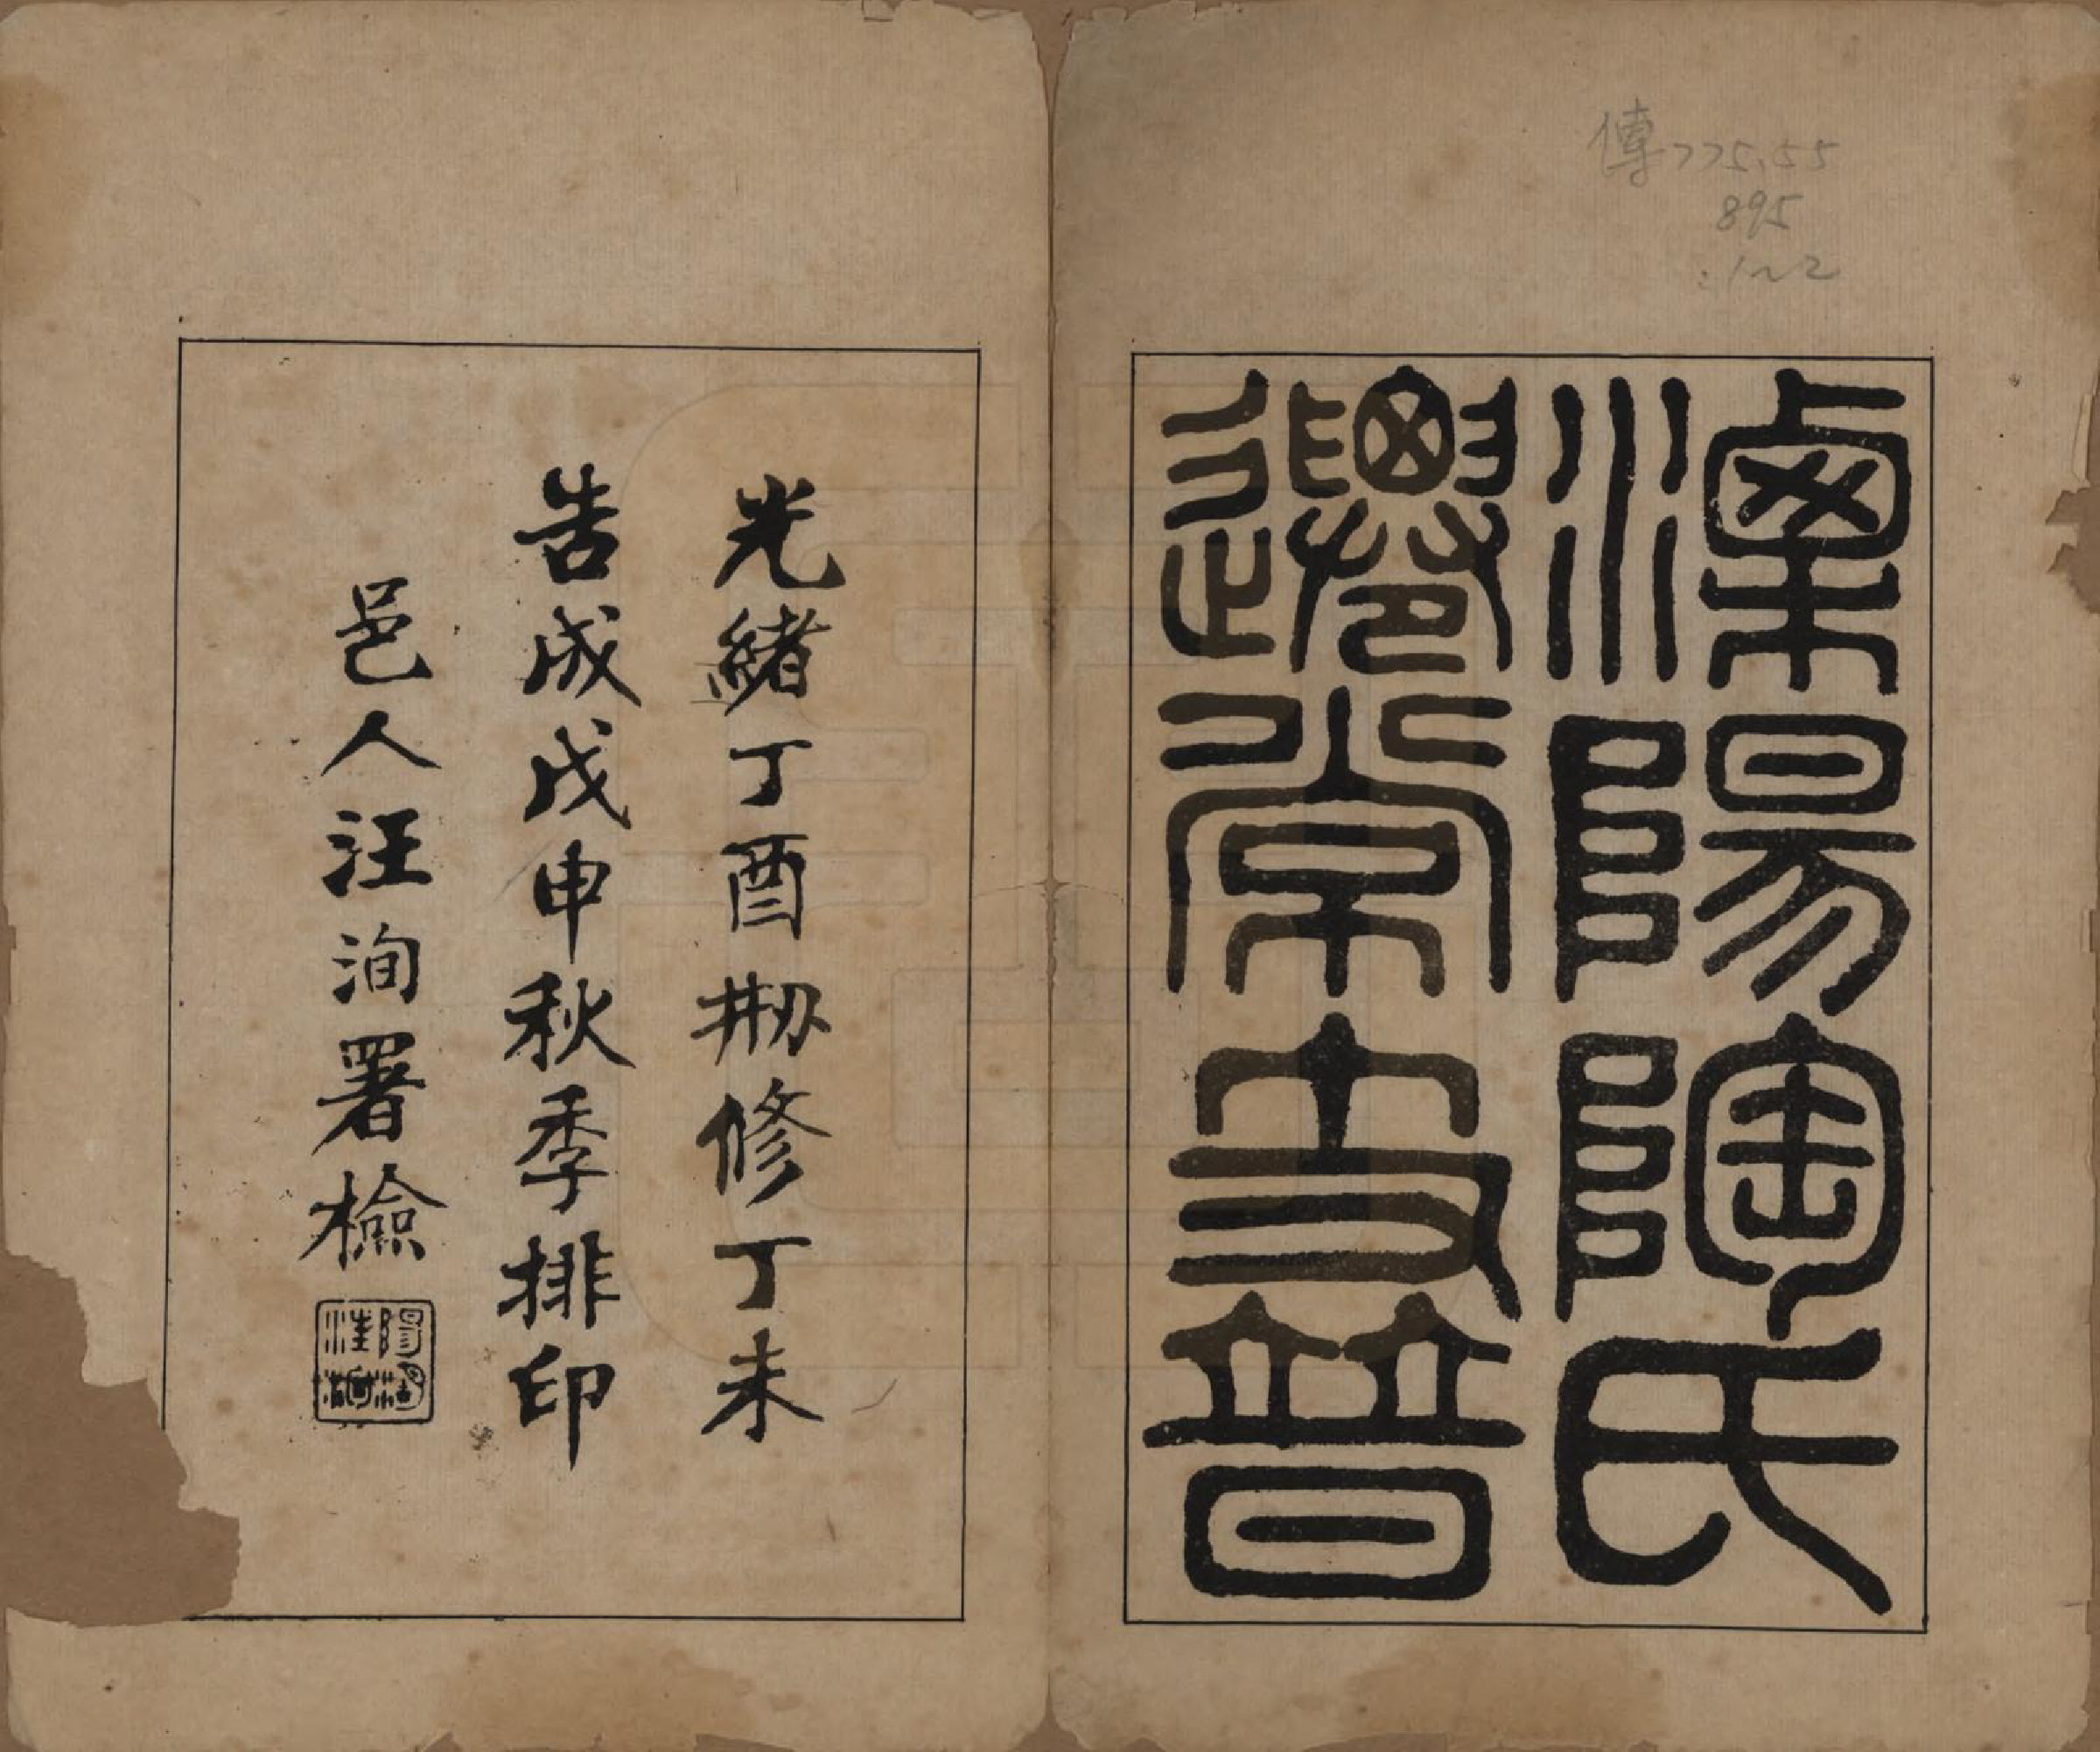 傳775.55
895
:1~2
溧陽陶氏
遷常支普
光緒丁酉刱修丁未
告成戊申秋季排印
邑人汪洵署檢
陽湖
汪洵